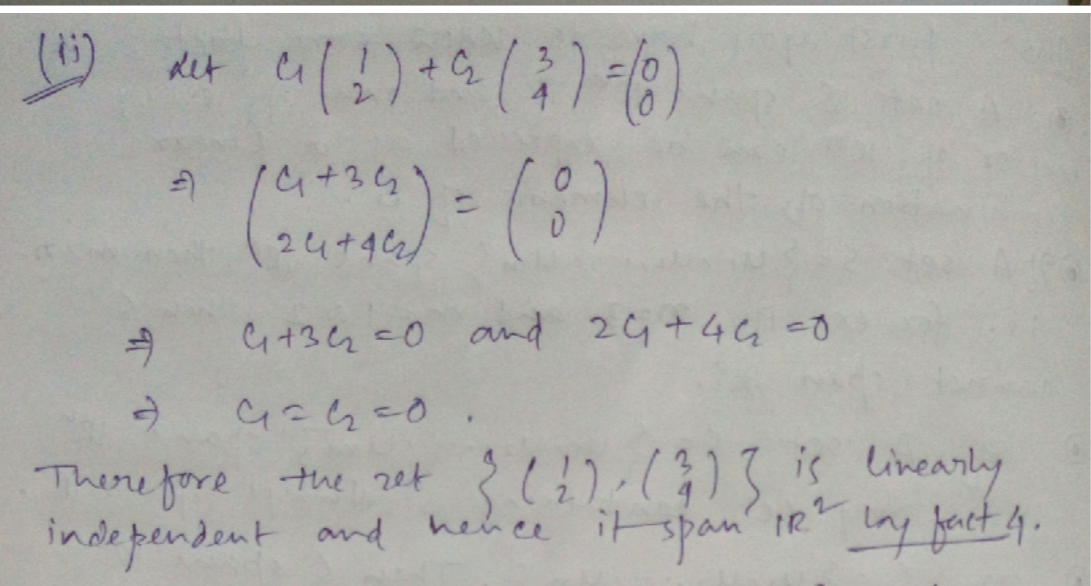 (ii) Let c₁ (1 2) + c₂ (3 4) = (0 0)
⇒ (c₁ + 3c₂ 2c₁ + 4c₂) = (0 0)
⇒ c₁ + 3c₂ = 0 and 2c₁ + 4c₂ = 0
⇒ c₁ = c₂ = 0 .
Therefore the set { (1 2), (3 4) } is linearly
independent and hence it span ℝ² by fact 4.